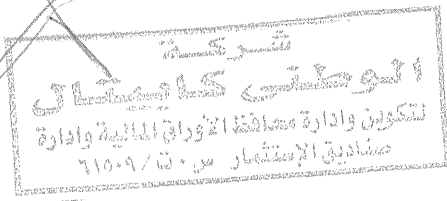 شركة
الوطنى كابيتال
لتكوين وادارة محافظ الأوراق المالية وادارة
صناديق الإستثمار س.ت/٦١٥٠٩